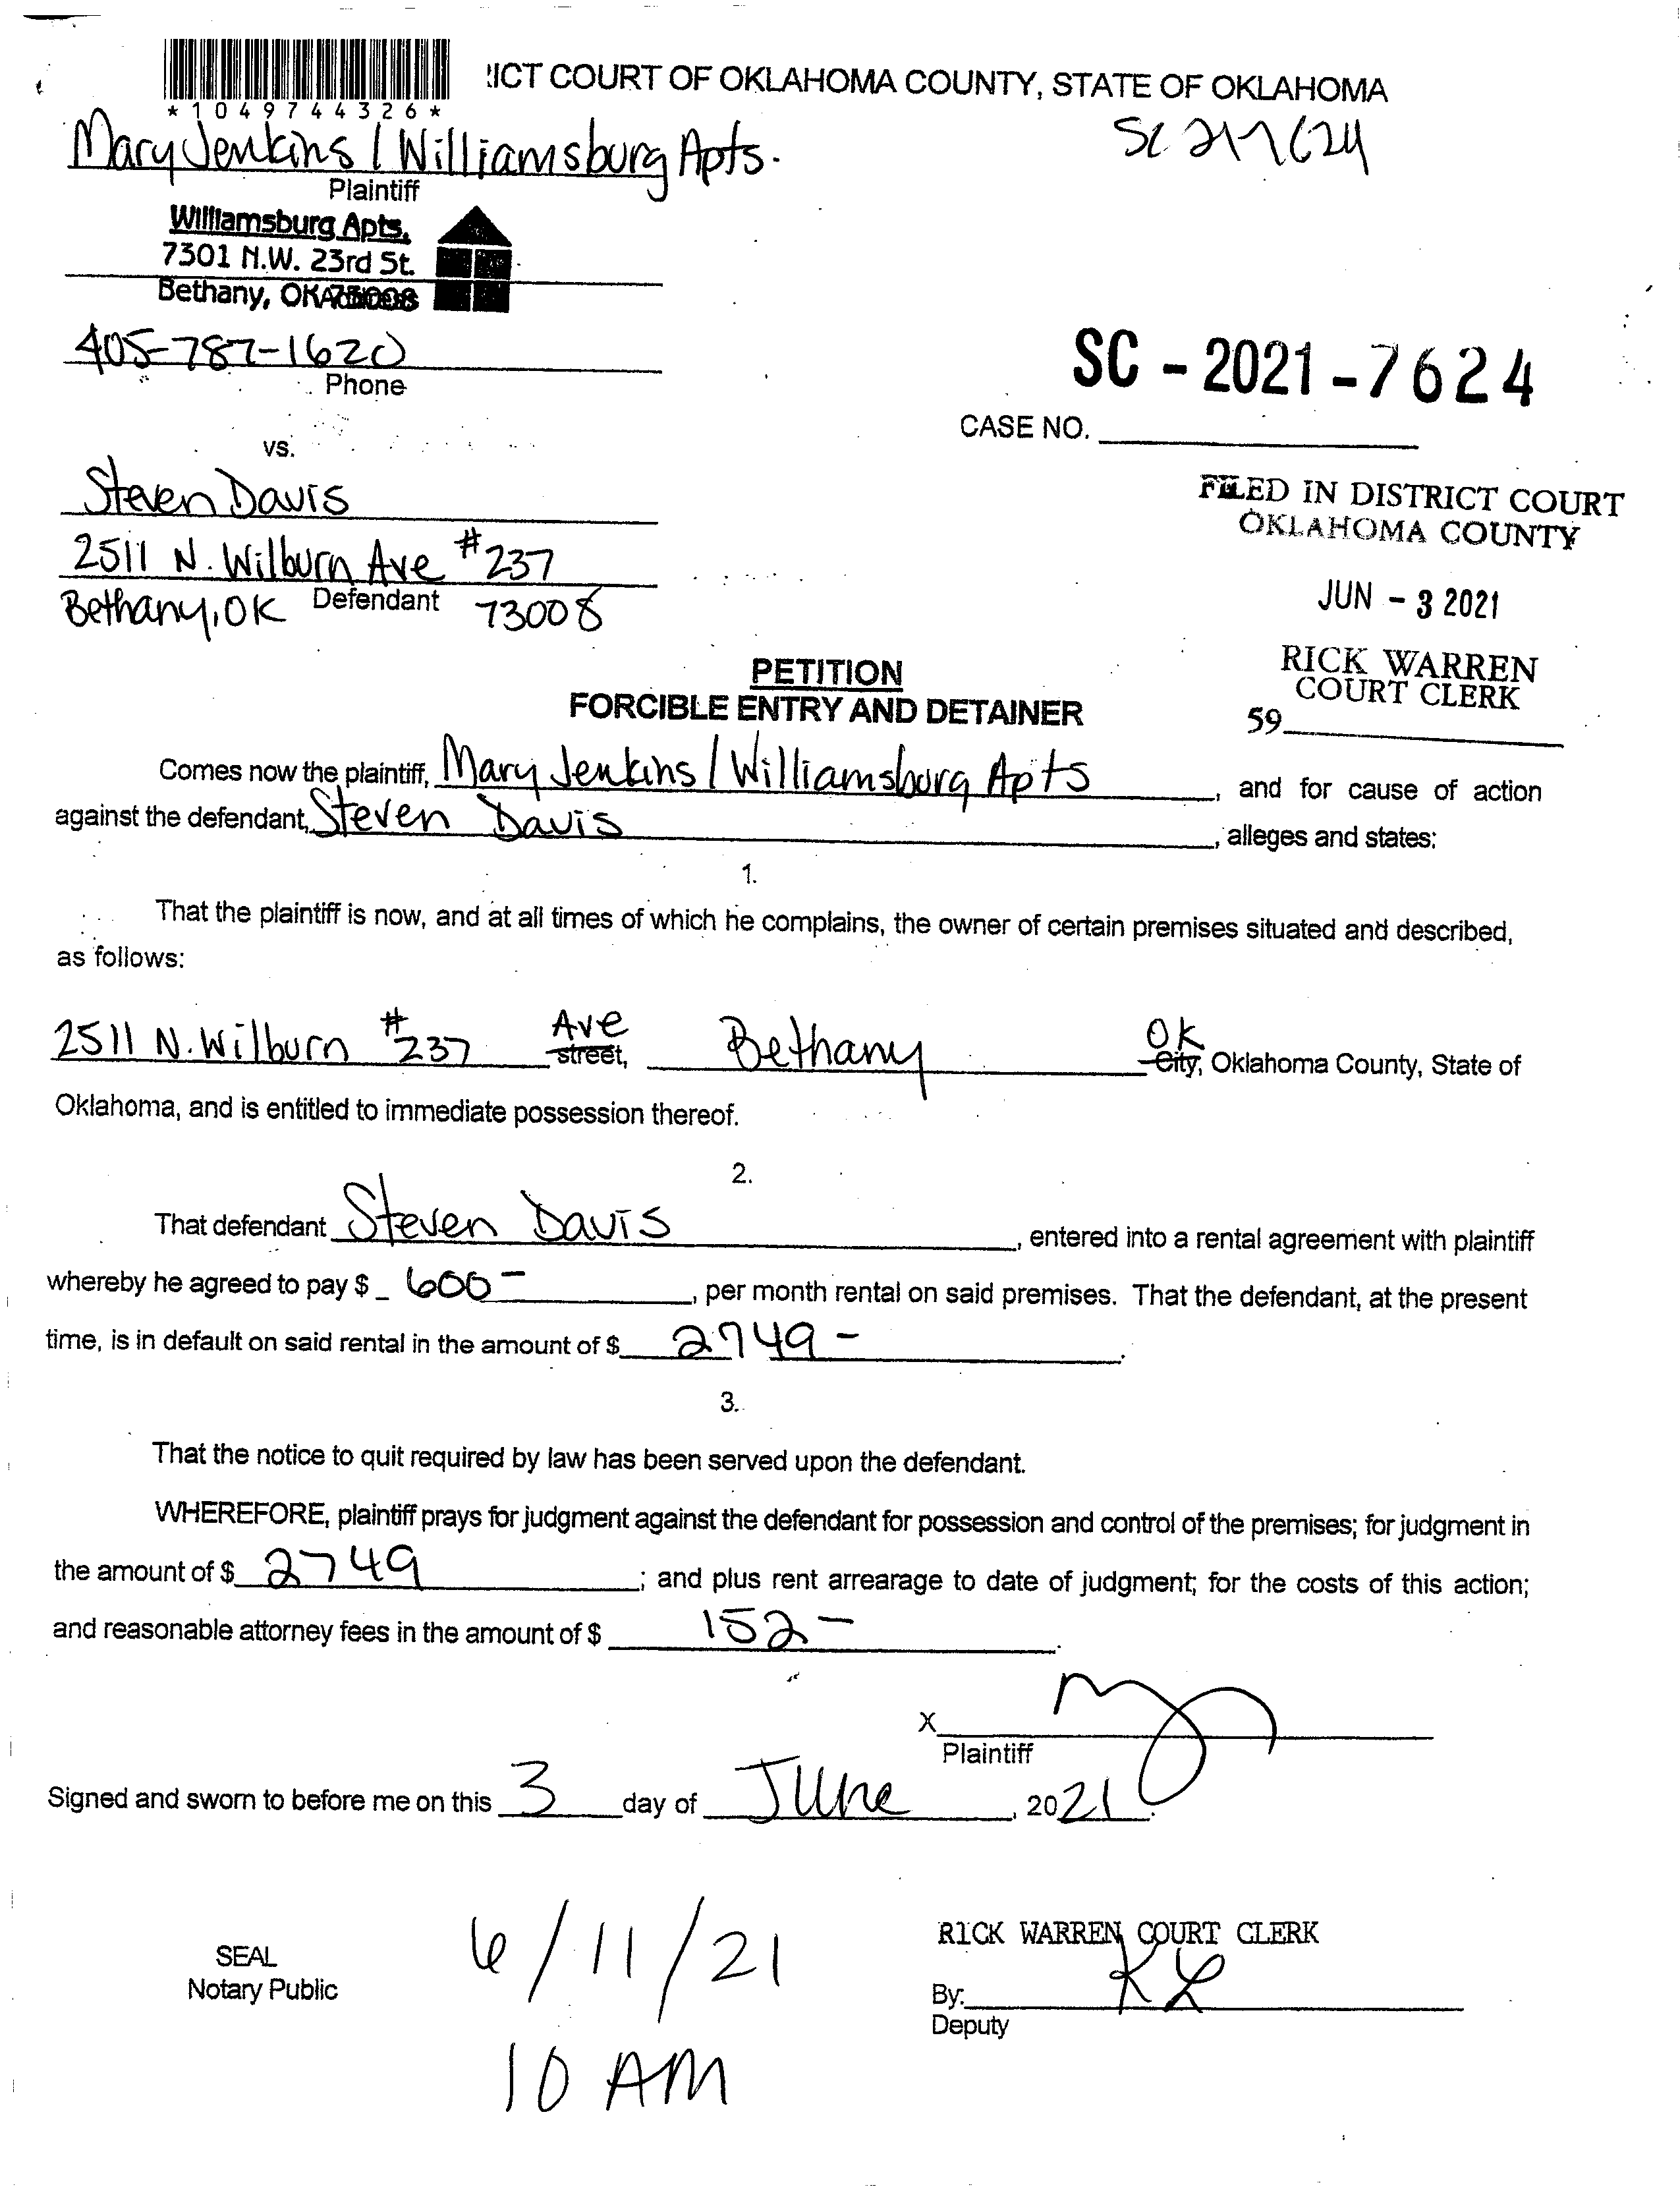 !ICT COURT OF OKLAHOMA COUNTY, STATE OF OKLAHOMA
*1049744326*
Mary Jenkins / Williamsburg Apts.
SC 217624
Plaintiff
Williamsburg Apts.
7301 N.W. 23rd St.
Bethany, OK
405-787-1620
Phone
SC - 2021 - 7624
CASE NO.
vs.
Steven Davis
2511 N. Wilburn Ave #237
Bethany, OK Defendant 73008
FILED IN DISTRICT COURT
OKLAHOMA COUNTY
JUN - 3 2021
RICK WARREN
COURT CLERK
59
PETITION
FORCIBLE ENTRY AND DETAINER
Comes now the plaintiff, Mary Jenkins / Williamsburg Apts, and for cause of action
against the defendant, Steven Davis, alleges and states:
1.
That the plaintiff is now, and at all times of which he complains, the owner of certain premises situated and described,
as follows:
2511 N. Wilburn #237 Ave street, Bethany OK City, Oklahoma County, State of
Oklahoma, and is entitled to immediate possession thereof.
2.
That defendant Steven Davis, entered into a rental agreement with plaintiff
whereby he agreed to pay $ 600-, per month rental on said premises. That the defendant, at the present
time, is in default on said rental in the amount of $ 2749-.
3.
That the notice to quit required by law has been served upon the defendant.
WHEREFORE, plaintiff prays for judgment against the defendant for possession and control of the premises; for judgment in
the amount of $ 2749; and plus rent arrearage to date of judgment; for the costs of this action;
and reasonable attorney fees in the amount of $ 152-.
X
Plaintiff
Signed and sworn to before me on this 3 day of June, 2021.
SEAL
Notary Public
6/11/21
10 AM
RICK WARREN COURT CLERK
By: KL
Deputy